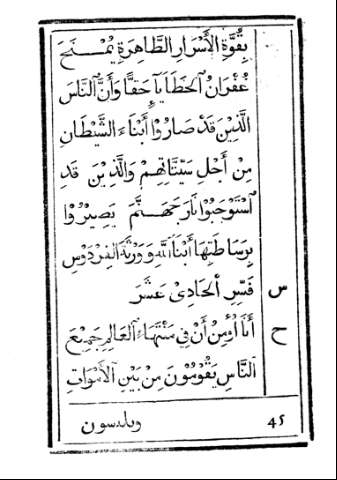 بِقُوَّةِ الأَسْرَارِ الطَّاهِرَةِ يُمْنَحَ
غُفْرَانُ الخَطَايَا حَقًّا وَأَنَّ النَّاسَ
الَّذِيْنَ قَدْ صَارُوْا أَبْنَاءَ الشَّيْطَانِ
مِنْ أَجْلِ سَيِّئَاتِهِمْ وَالَّذِيْنَ قَدِ
اسْتَوْجَبُوْا نَارَ جَهَنَّمَ يَصِيْرُوْا
بِوَسَاطَتِهَا أَبْنَاءَ اللهِ وَوَرَثَةَ الفِرْدَوْسِ
س فَسِّرِ الحَادِيْ عَشَرَ
ح أَنَا أُومِنُ أَنْ فِيْ مُنْتَهَاءِ العَالَمِ جَمِيْعَ
النَّاسِ يَقُوْمُوْنَ مِنْ بَيْنِ الأَمْوَاتِ
45 ويلبسون